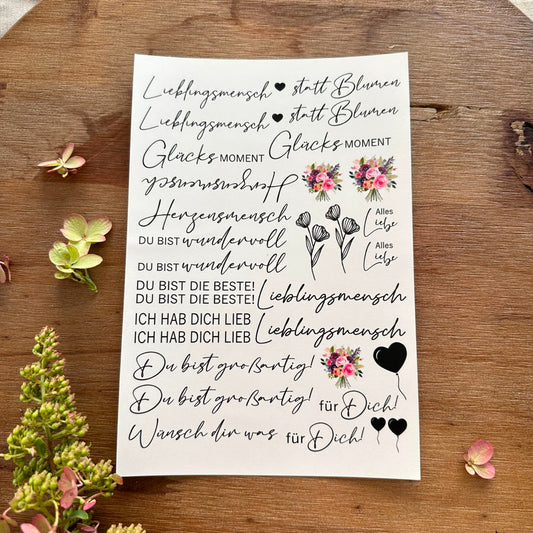 Lieblingsmensch statt Blumen
Lieblingsmensch statt Blumen
Glücks MOMENT Glücks MOMENT
Herzensmensch
Herzensmensch
Alles
Liebe
DU BIST wundervoll
Alles
Liebe
DU BIST wundervoll
DU BIST DIE BESTE!
DU BIST DIE BESTE! Lieblingsmensch
ICH HAB DICH LIEB
ICH HAB DICH LIEB Lieblingsmensch
Du bist großartig!
Du bist großartig! für Dich!
Wünsch dir was für Dich!